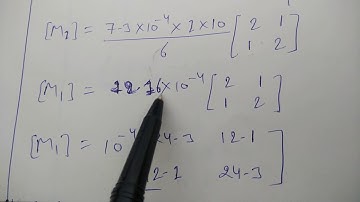 [M2] = 7-3×10^-4 × 2×10 / 6 [2 1
1 2]
[M1] = ×10^-4 [2 1
1 2]
[M1] = 10^-4 24-3 12-1
2-1 24-3]